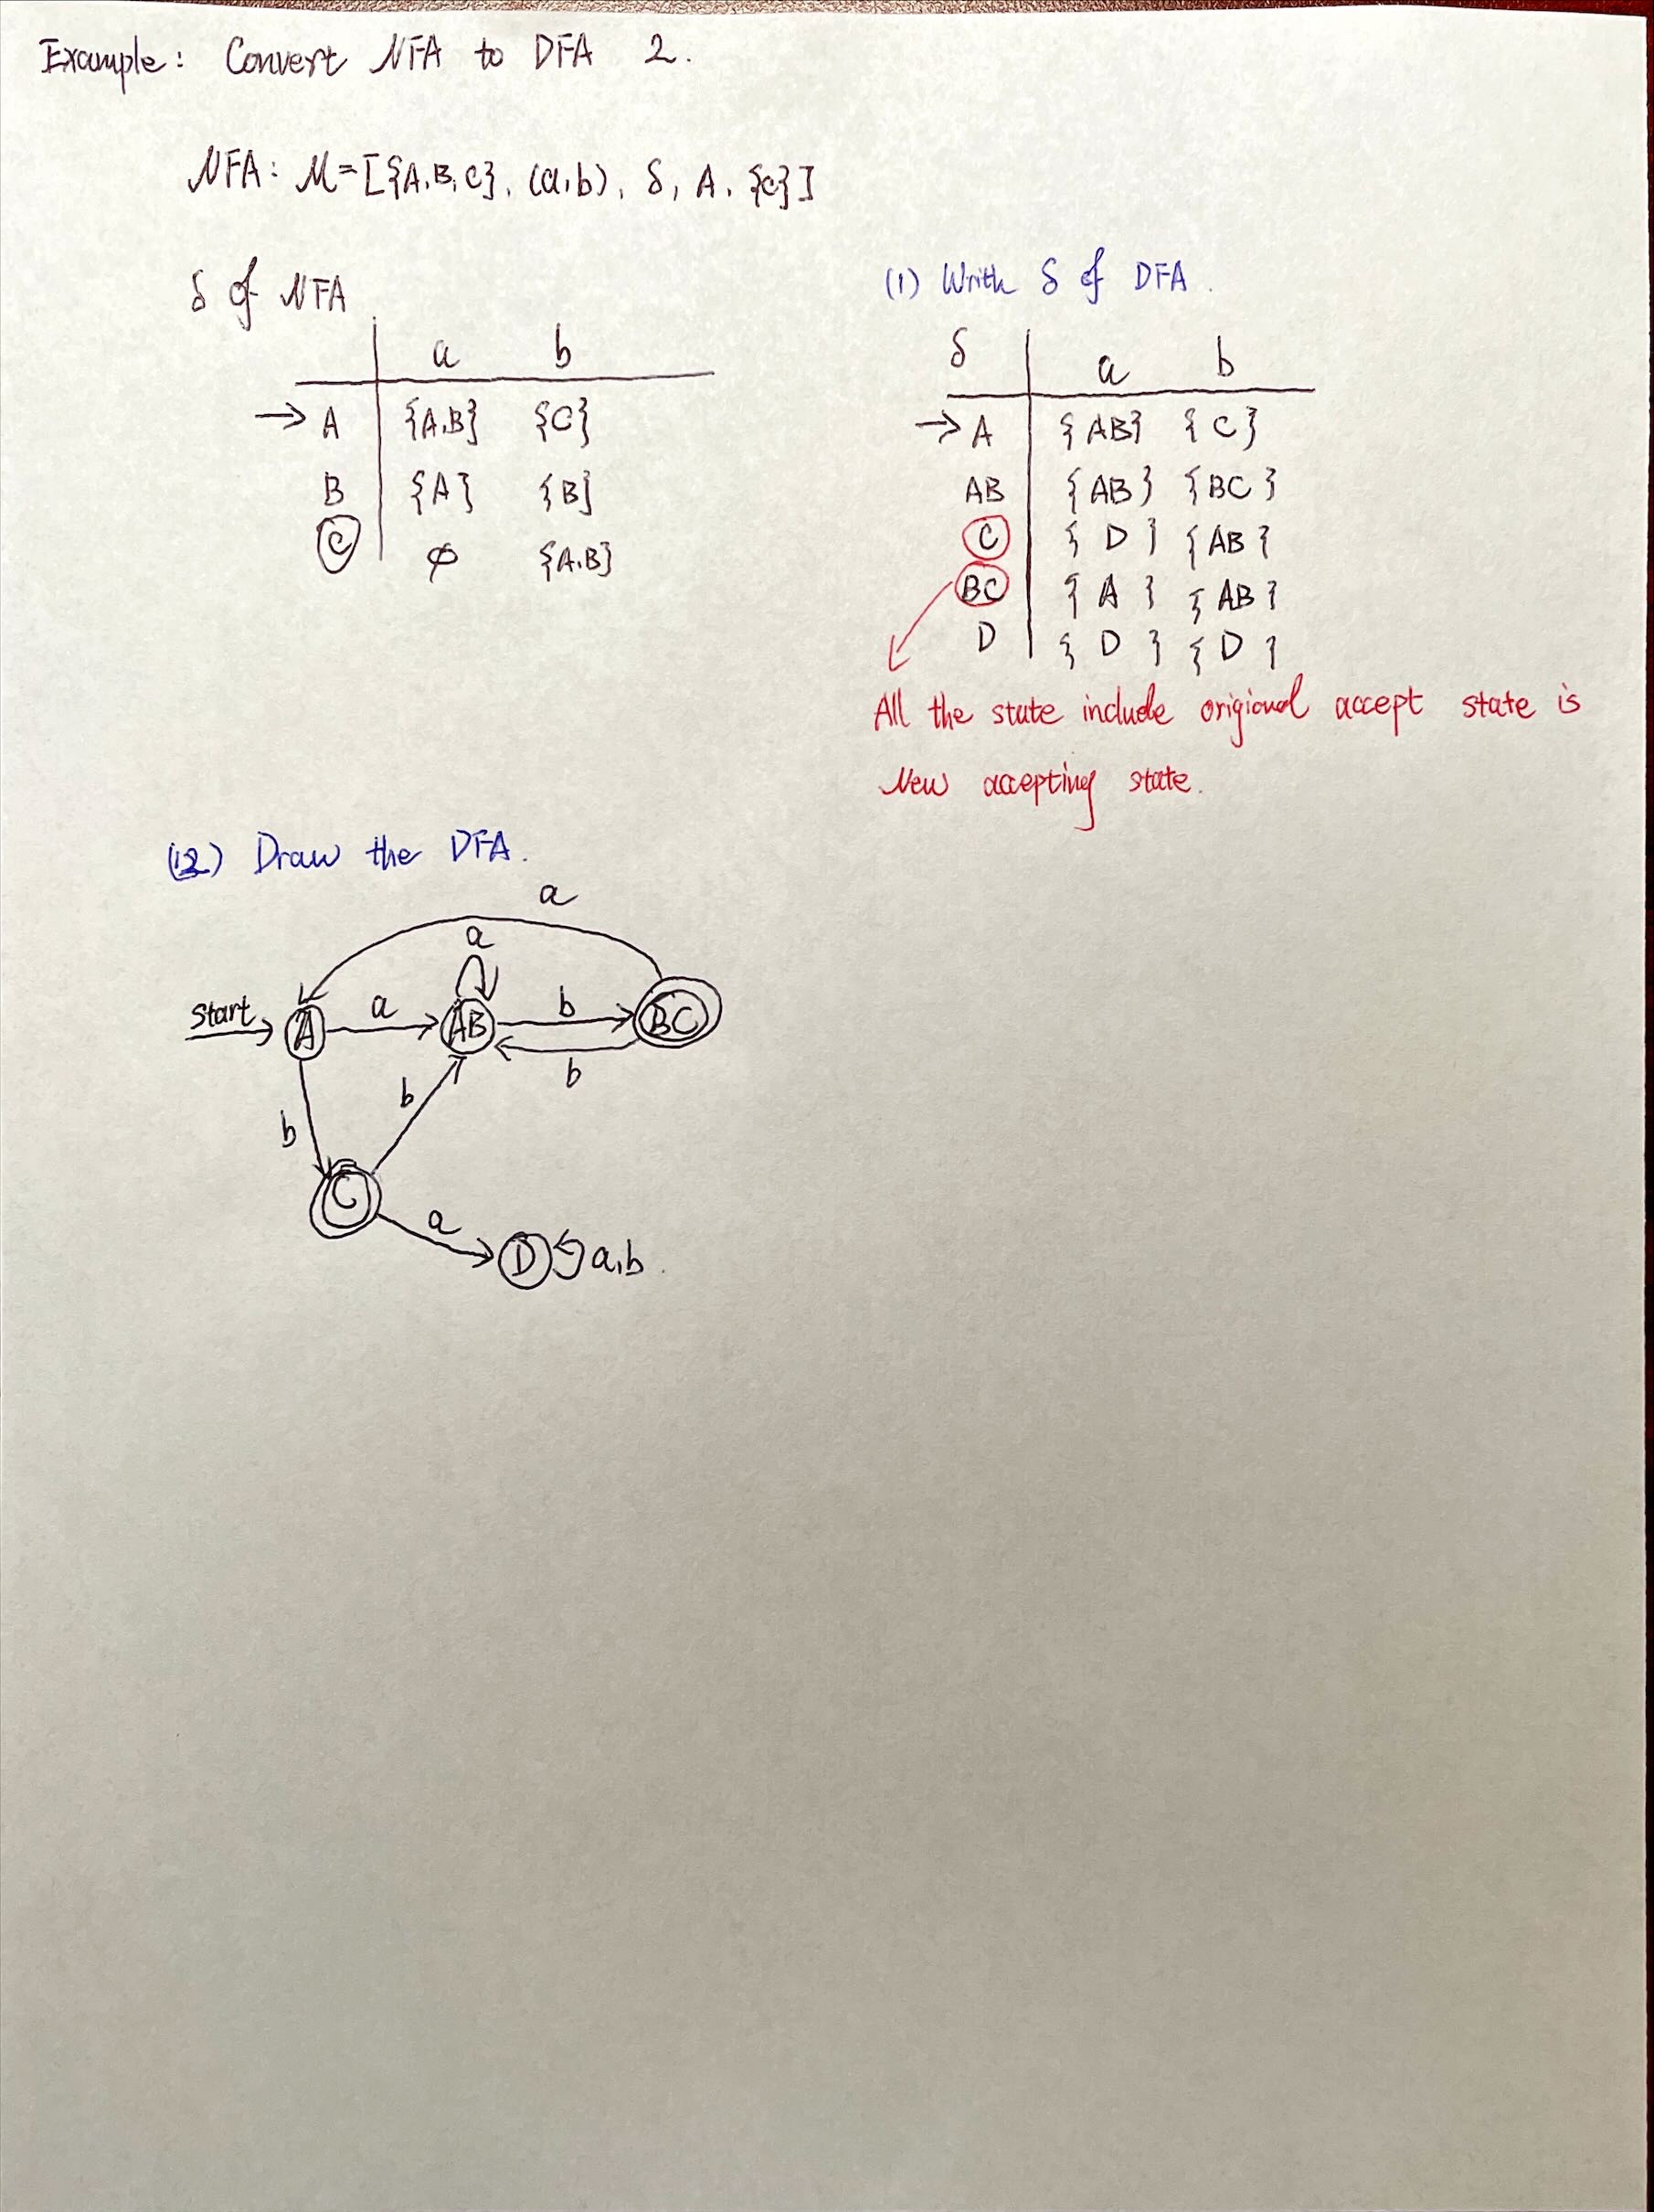 Example: Convert NFA to DFA 2.
NFA: M=[{A,B,C}, (a,b), δ, A, {C}]
δ of NFA
a b
→ A {A,B} {C}
B {A} {B}
C ∅ {A,B}
(1) Writh δ of DFA.
δ a b
→ A {AB} {C}
AB {AB} {BC}
C {D} {AB}
BC {A} {AB}
D {D} {D}
All the state include origional accept state is
New accepting state.
(2) Draw the DFA.
a
a
start A a AB b BC
b
b b
C
a
D a,b.